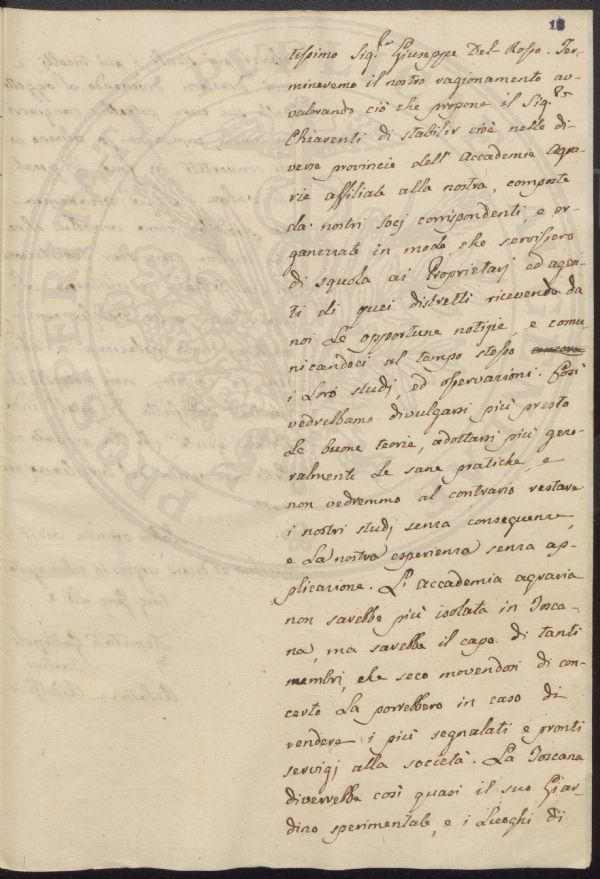 18
tissimo Sig.re Giuseppe Del-Rosso. Ter-
mineremo il nostro ragionamento av-
valorando ciò che propone il Sig.re
Chiarenti di stabilir cioè nelle di-
verse provincie dell' Accademie Agra-
rie affiliate alla nostra, composte
da' nostri Socj corrispondenti, e or-
ganizzate in modo, che servissero
di squola ai Proprietarj ed agen-
ti di quei distretti ricevendo da
noi Le opportune notizie, e comu-
nicandoci al tempo stesso ancora
i Loro studj, ed osservazioni. Così
vedrebbamo divulgarsi più presto
Le buone teorie, adottarsi più gene-
ralmente Le sane pratiche, e
non vedremmo al contrario restare
i nostri studj senza conseguenze,
e La nostra esperienza senza ap-
plicazione. L' Accademia agraria
non sarebbe più isolata in Tosca-
na, ma sarebbe il capo di tanti
membri, che seco movendosi di con-
certo La porrebbero in caso di
rendere i più segnalati e pronti
servigj alla società. La Toscana
diverrebbe così quasi il suo Giar-
dino sperimentale, e i Luoghi di